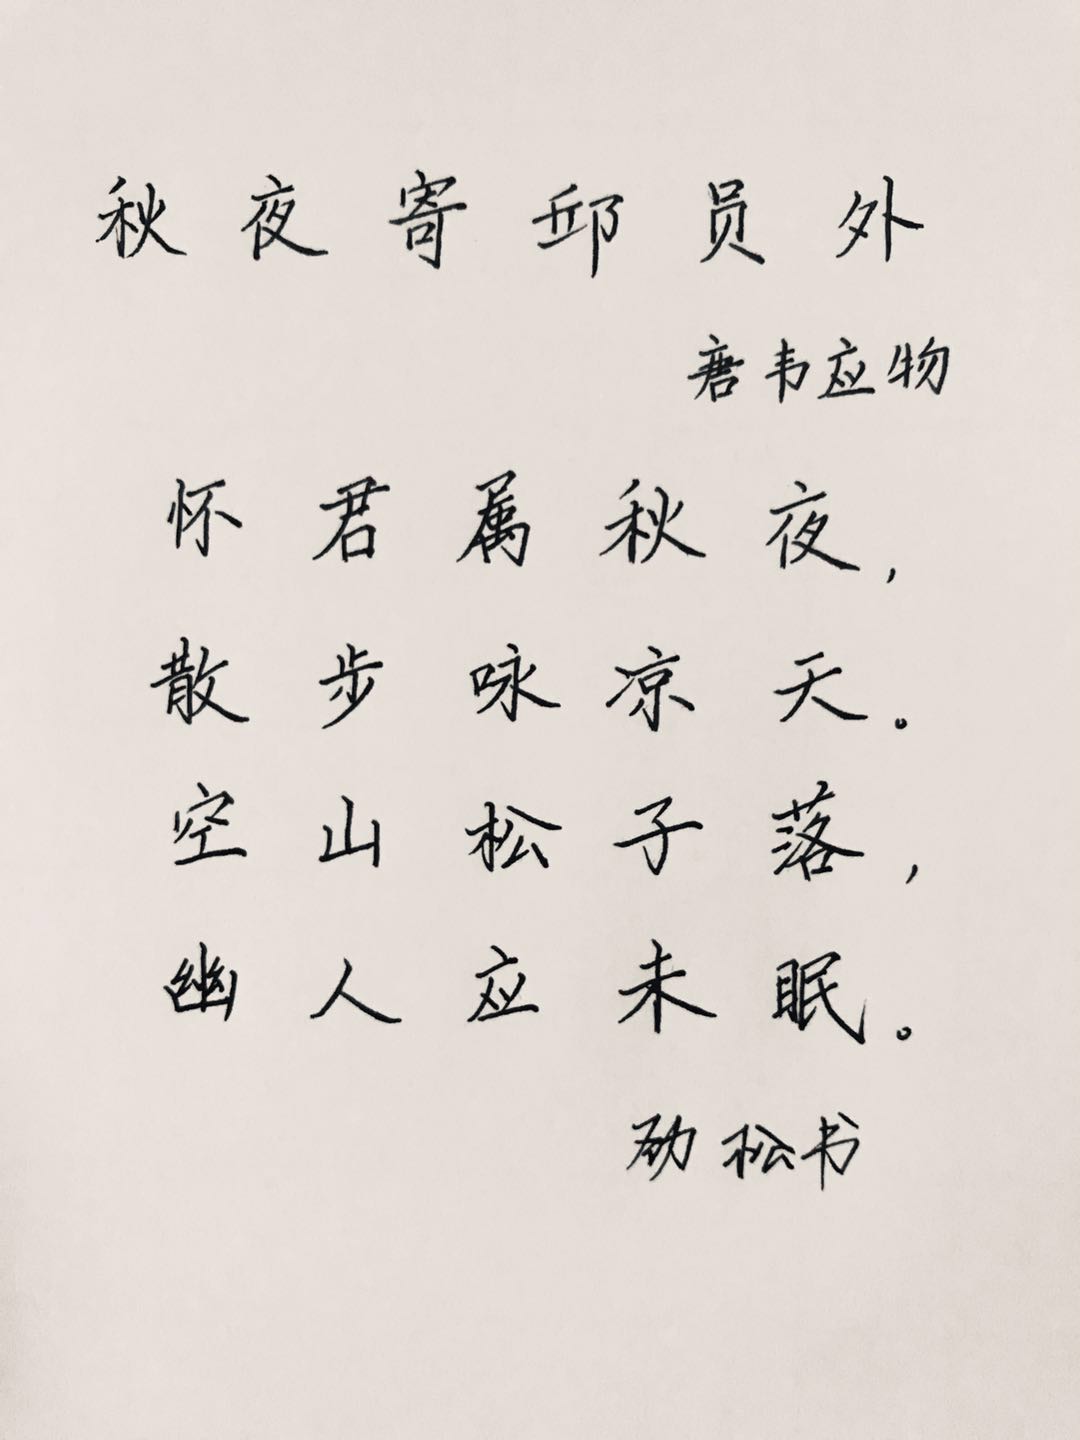 秋夜寄邱员外
唐韦应物
怀君属秋夜，
散步咏凉天。
空山松子落，
幽人应未眠。
劲松书